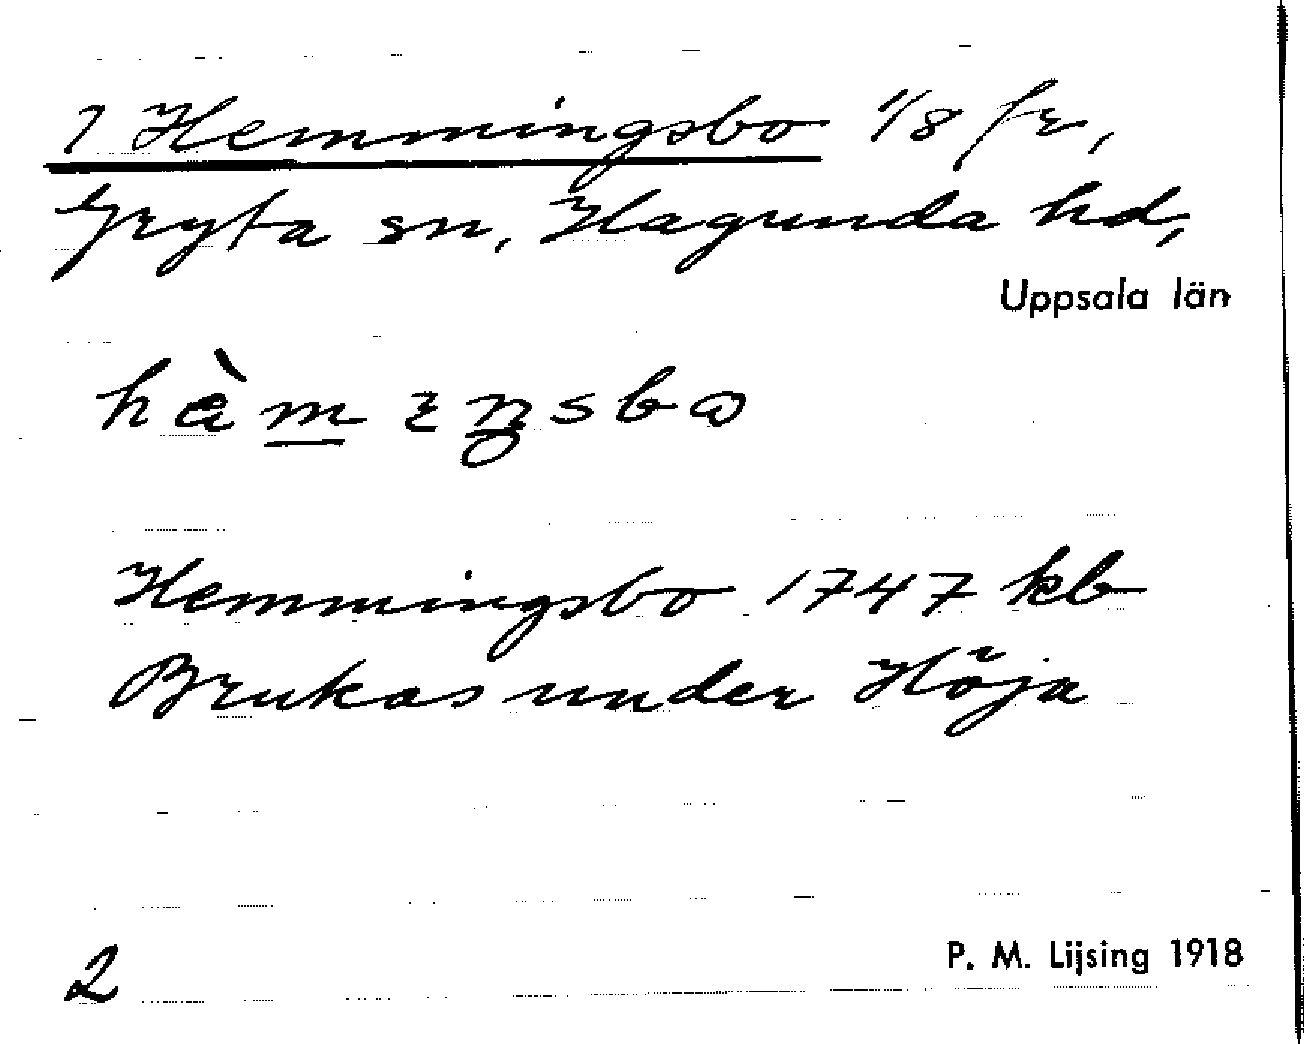 1 Hemmingsbo 1/8 fr,
Gryta sn, Hagunda hd,
Uppsala län
hèmıŋsbω
Hemmingsbo 1747 kb
Brukas under Höja
2
P. M. Lijsing 1918